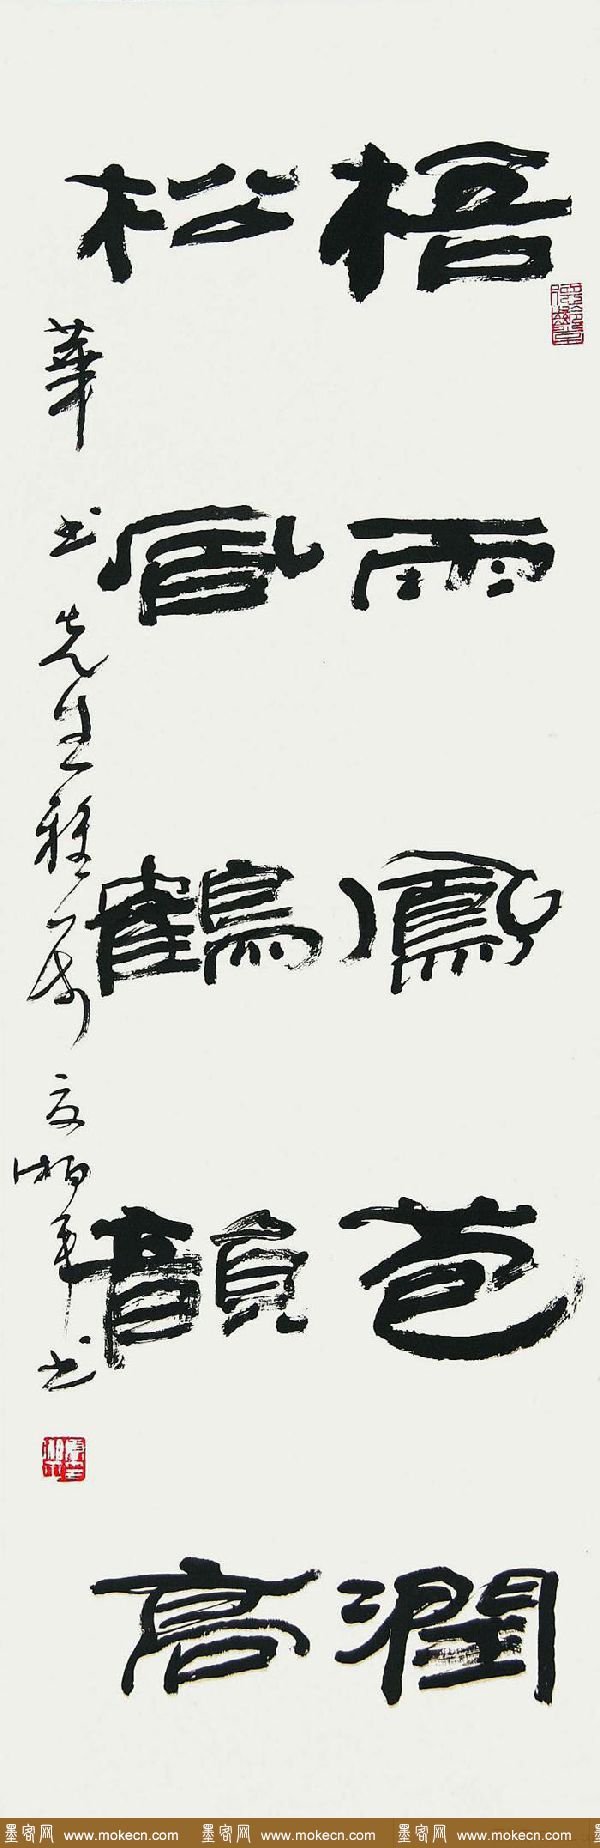 梧雨鳳苞潤
松風鶴韻高
華書先生雅屬 夏湘平書
墨客网 www.mokecn.com 墨客网 www.mokecn.com 墨客网 www.mokecn.com